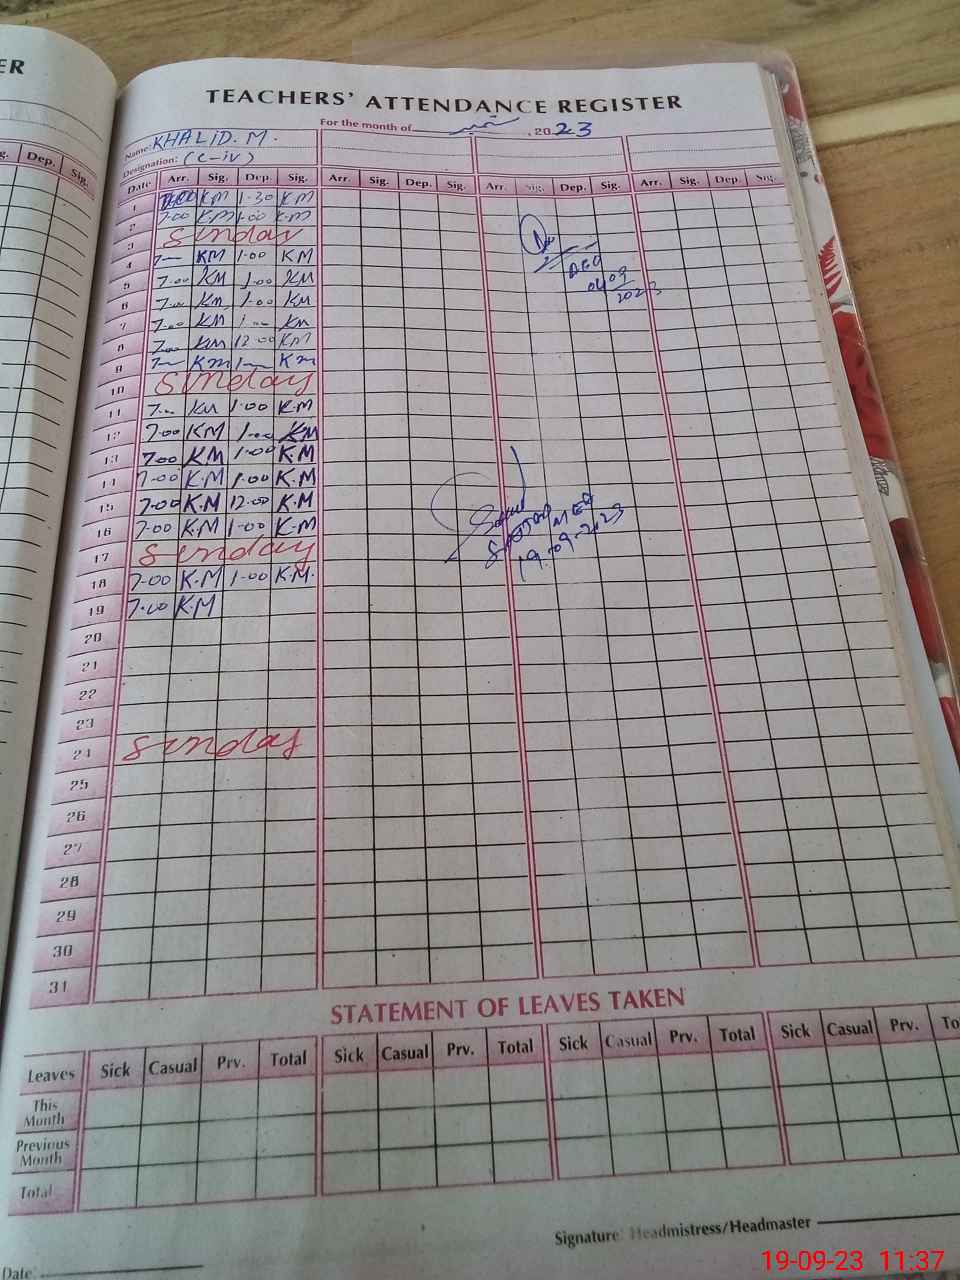 ER
TEACHERS' ATTENDANCE REGISTER
For the month of ستمبر, 2023
Name: KHALID. M.
Designation: (C-iv)
g. Dep. Sig.
Date Arr. Sig. Dep. Sig. Arr. Sig. Dep. Sig. Arr. Sig. Dep. Sig. Arr. Sig. Dep. Sig.
1 KM 1-30 KM
2 7-00 KM 1-00 K.M
3 Sunday
4 7— KM 1-00 KM
5 7-00 KM 1-00 KM
6 7-00 KM 1-00 KM
7 7-00 KM 1— KM
8 7-00 KM 12-00 KM
9 7— KM 1— KM
10 Sunday
11 7— KM 1-00 K.M
12 7-00 KM 1-00 KM
13 7-00 KM 1-00 K.M
14 7-00 K.M 1-00 K.M
15 7-00 K.M 12-00 K.M
16 7-00 K.M 1-00 K.M
17 Sunday
18 7-00 K.M 1-00 K.M.
19 7-00 K.M
20
21
22
23
24 Sunday
25
26
27
28
29
30
31
DEO
04/09
2023
MEO
19-09-2023
STATEMENT OF LEAVES TAKEN
Leaves Sick Casual Prv. Total Sick Casual Prv. Total Sick Casual Prv. Total Sick Casual Prv. To
This Month
Previous Month
Total
Signature: Headmistress/Headmaster
Date:
19-09-23 11:37